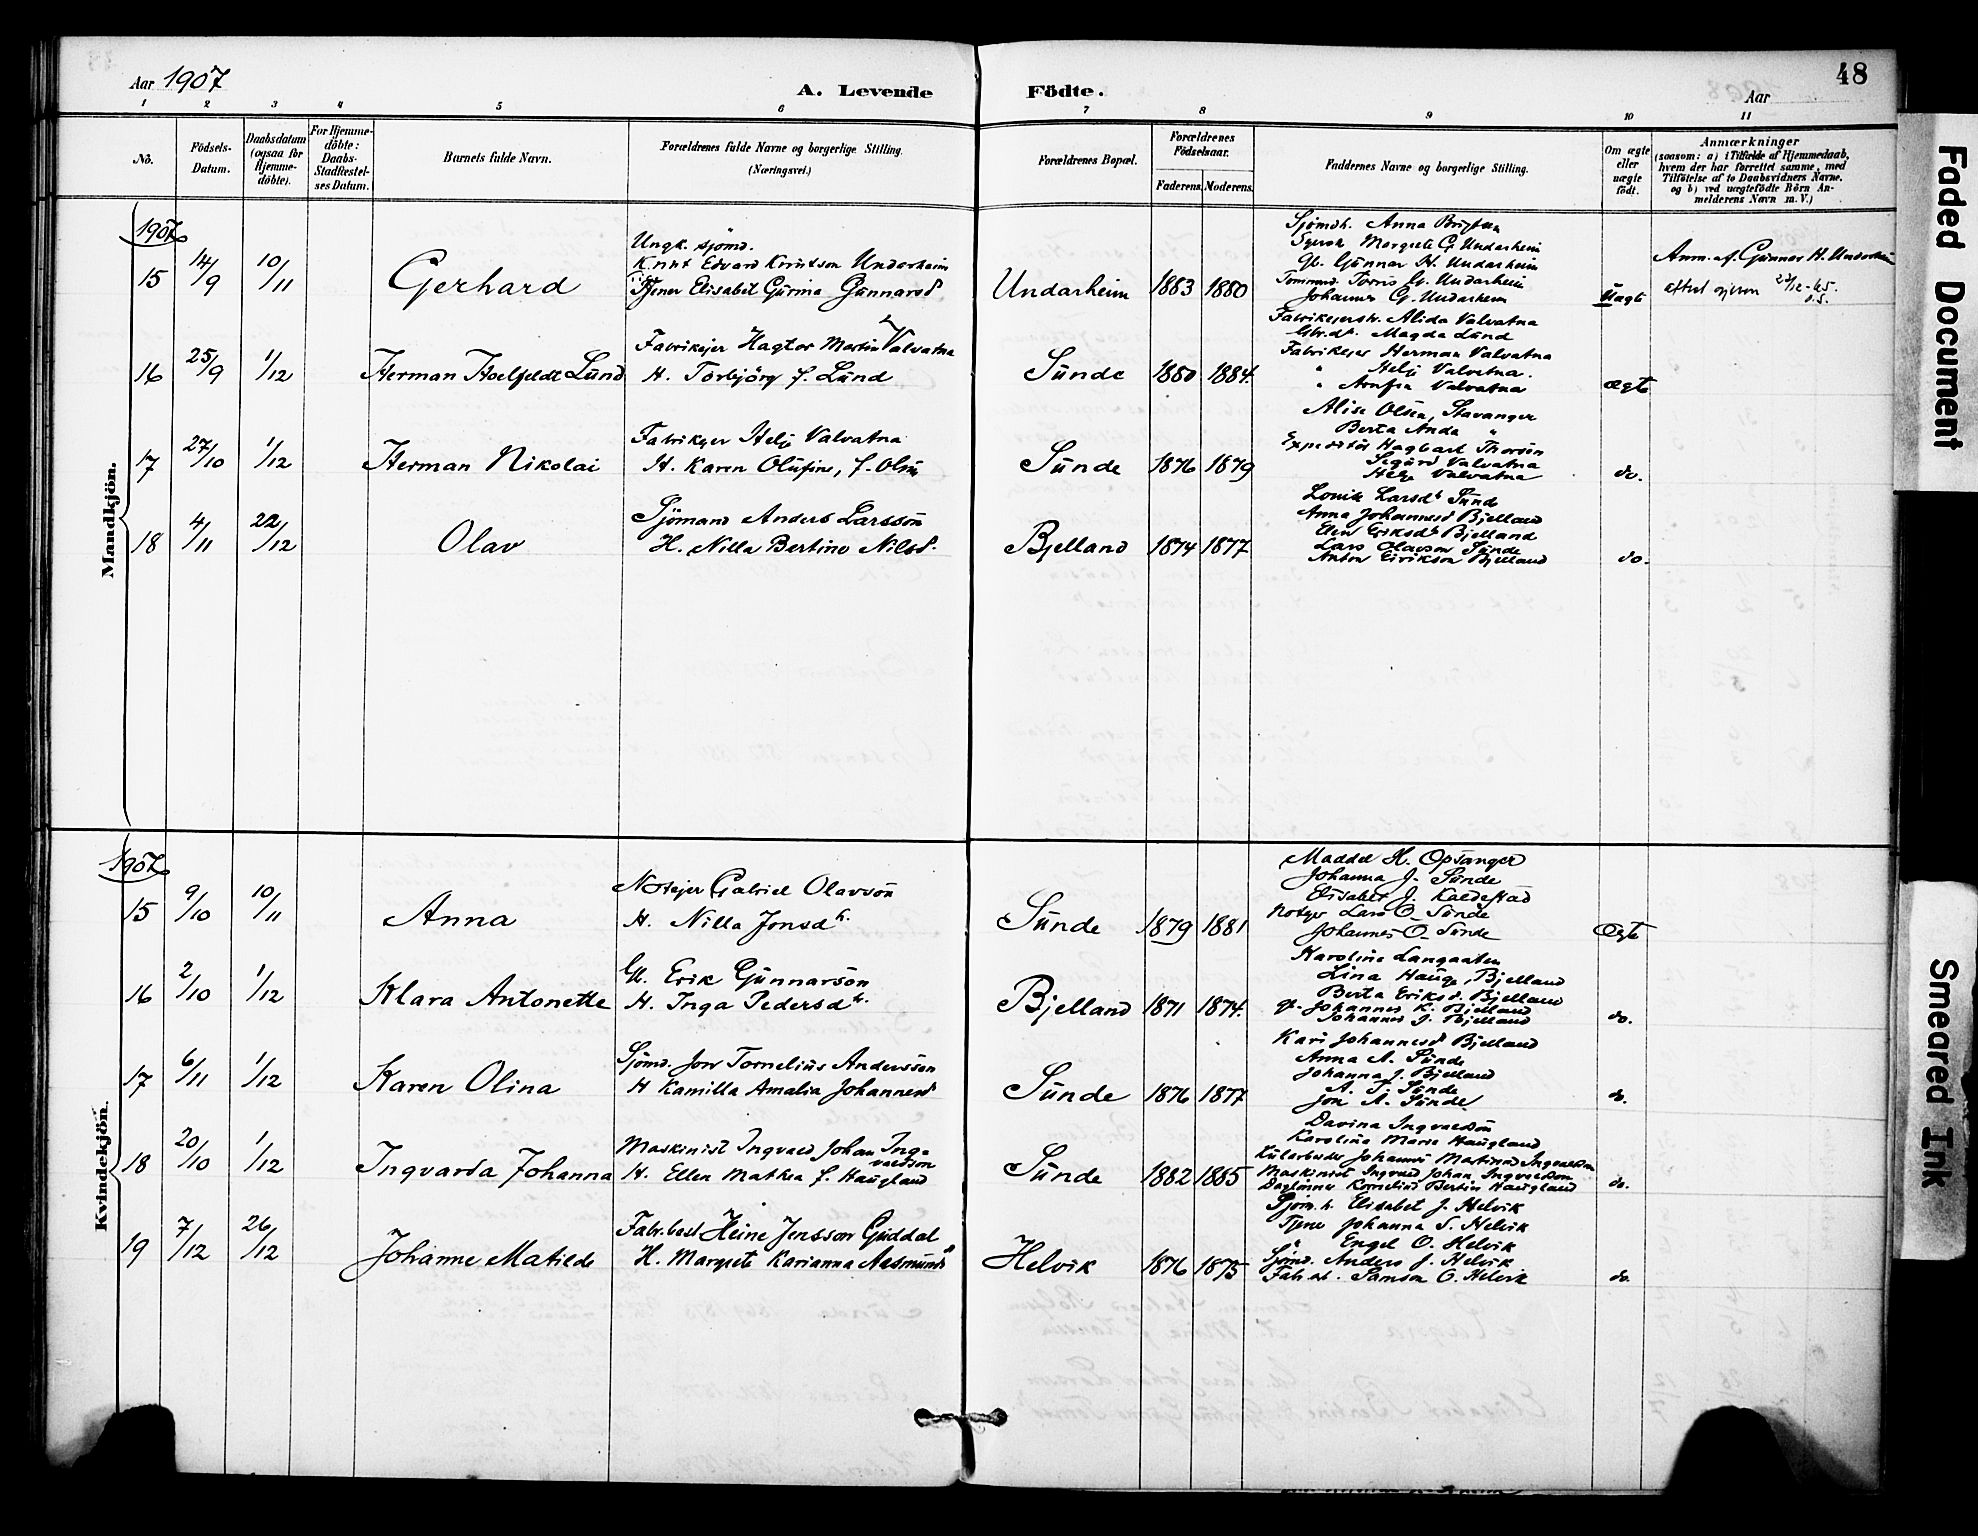 Aar 1907
A. Levende Födte.
Aar
48
1 2 3 4 5 6 7 8 9 10 11
No.
Födsels-Datum.
Daabsdatum (ogsaa for Hjemme-döbte).
For Hjemme-döbte: Daabs-Stadfæstel-ses Datum.
Barnets fulde Navn.
Forældrenes fulde Navne og borgerlige Stilling. (Næringsvei.)
Forældrenes Bopæl.
Forældrenes Födselsaar.
Faderens. Moderens.
Faddernes Navne og borgerlige Stilling.
Om ægte eller uægte födt.
Anmærkninger
(saasom: a) i Tilfælde af Hjemmedaab, hvem der har forrettet samme, med Tilföielse af to Daabsvidners Navne. og b) ved uægtefödte Börn An-melderens Navn m. V.)
Mandkjön.
1907
15 14/9 10/11 Gerhard
Ungk. sjömd.
Knut Edvard Knutson Undarheim
Tjener Elisabet Gurina Gunnarsd
Undarheim 1883 1880
Sjömdh. Anna
Margrete G. Undarheim
Gb. Gunnar H. Undarheim
Tommermd. Torris G. Undarheim
Johannes G. Undarheim
Uægte
Anm. af Gunnar H. Undarheim
16 25/9 1/12 Herman Hoelfeldt Lund
Fabrikejer Hagtor Martin Valvatna
H. Torbjörg f. Lund
Sunde 1880 1884.
Fabrikejerstr. Alida Valvatna
Gbr.dt. Magda Lund
Fabrikejer Herman Valvatna
" Helje Valvatna.
" Arnfin Valvatna
ægte
17 27/10 1/12 Herman Nikolai
Fabrikejer Helje Valvatna
H. Karen Olufine, f. Olsen
Sunde 1876 1879
Alise Olsen, Stavanger
Berta Anda "
Expeditör Hagbart Thorsen
Sigurd Valvatna
Helge Valvatna
do.
18 4/11 22/12 Olav
Sjömand Anders Larsson
H. Nilla Bertine Nilsd.
Bjelland 1874 1877
Lovise Larsdt Sunde
Anna Johannesd Bjelland
Elen Eriksdt Bjelland
Lars Olavson Sunde
Anton Eirikson Bjelland
do.
Kvindekjön.
1907
15 9/10 10/11 Anna
Notejer Gabriel Olavson
H. Nilla Jonsdtr.
Sunde 1879 1881
Maddel H. Opsanger
Johanna J. Sunde
Elisabet J. Kaldestad
Notejer Lars O. Sunde
Johannes O. Sunde
Ægte
16 2/10 1/12 Klara Antonette
Gb. Erik Gunnarson
H. Inga Pedersdtr.
Bjelland 1871 1874.
Karoline Langaaten
Lina Hauge, Bjelland
Berta Eriksd. Bjelland
Gb. Johannes K. Bjelland
Johannes J. Bjelland
do.
17 6/11 1/12 Karen Olina
Sjömd. Jon Tornelius Andersson
H Kamilla Amalia Johannesd
Sunde 1876 1877
Kari Johannesd Bjelland
Anna A. Sunde
Johanna J. Bjelland
A. T. Sunde
Jon A. Sunde
do.
18 20/10 1/12 Ingvarda Johanna
Maskinist Ingvald Johan Ingvaldson
H. Ellen Mathea f. Haugland
Sunde 1882 1885
Davina Ingvaldson
Karolina Marie Haugland
Johannes Martinus Ingvaldson
Maskinist Ingvald Johan Ingvaldson
Daglönner Kornelius Bertin Haugland
do.
19 7/12 26/12 Johanne Matilde
Fabr.best Heine Jensson Guddal
H. Margrete Karianna Aasmundsd
Helvik 1876 1875
Sjöm.h. Elisabet J. Helvik
Tjene Johanna S. Helvik
" Engel O. Helvik
Sjömd. Anders J. Helvik
Fabr.arb. Samson O. Helvik
do.
Faded Document
Smeared Ink